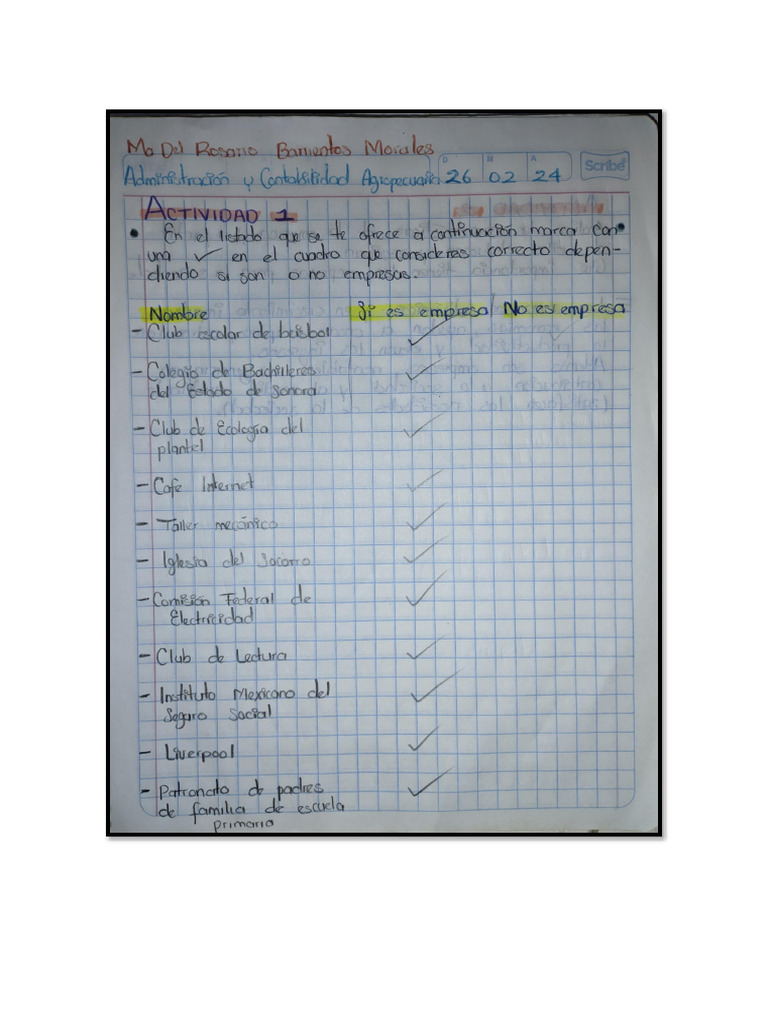 Ma Del Rosario Barrientos Morales
D M A
Administración y Contabilidad Agropecuaria 26 02 24
Scribe
ACTIVIDAD 1
• En el listado que se te ofrece a continuación marca con
una ✓ en el cuadro que consideres correcto depen-
diendo si son o no empresas.
Nombre Si es empresa No es empresa
- Club escolar de beisbol ✓
- Colegio de Bachilleres ✓
del Estado de Sonora
- Club de Ecología del ✓
plantel
- Cafe Internet ✓
- Taller mecánico ✓
- Iglesia del Socorro ✓
- Comisión Federal de ✓
Electricidad
- Club de Lectura ✓
- Instituto Mexicano del ✓
Seguro Social
- Liverpool ✓
- Patronato de padres ✓
de familia de escuela
primaria